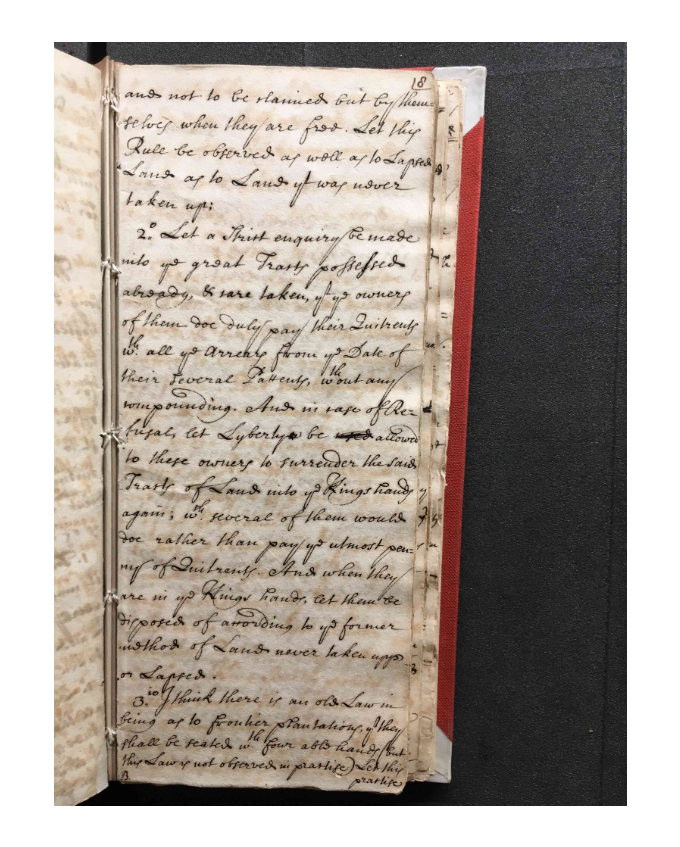 18
and not to be claimed but by them-
selves when they are free. Let this
Rule be observed as well as to Lapsed
Land as to Land yt was never
taken up:
2.o Let a strict enquiry be made
into ye great Tracts possessed
already, & care taken, yt ye owners
of them doe duly pay their Quitrents
wth. all ye Arrears from ye Date of
their several Pattents, wthout any
compounding. And in case of Re-
fusal, let Lyberty be allowed
to these owners to surrender the said
Tracts of Land into ye Kings hands
again; wch. several of them would
doe rather than pay ye utmost pen-
ny of Quitrents. And when they
are in ye Kings hands, let them be
disposed of according to ye former
method of Land never taken upp
or Lapsed.
3.io I think there is an old Law in
being as to frontier plantations, yt they
shall be seated wth four able hands (but
this Law is not observed in practise) Let this
practise